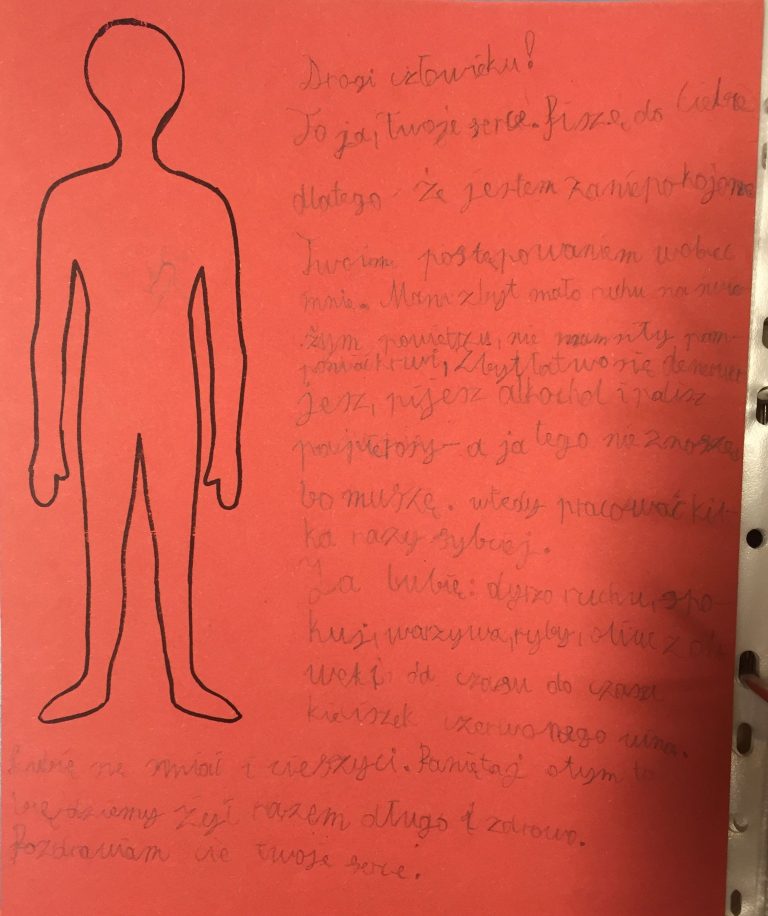 Drogi człowieku!
To ja, twoje serce. Piszę do Ciebie
dlatego że jestem zaniepokojone
Twoim postępowaniem wobec
mnie. Mam zbyt mało ruchu na świe-
żym powietrzu, nie mam siły pom-
pować krwi, Zbyt łatwo się denerwu
jesz, pijesz alkochol i palisz
papierosy - a ja tego nie znoszę
bo muszę. wtedy pracować kil-
ka razy sybciej.
Ja lubię: dyrzo ruchu, spo-
kuj, warzywa, ryby, oliwę z oli
wek i od czasu do czasu
kieliszek czerwonego wina.
Lubię się śmiać i cieszyci. Pamiętaj otym to
będziemy żyć razem długo i zdrowo.
Pozdrawiam cie twoje serce.